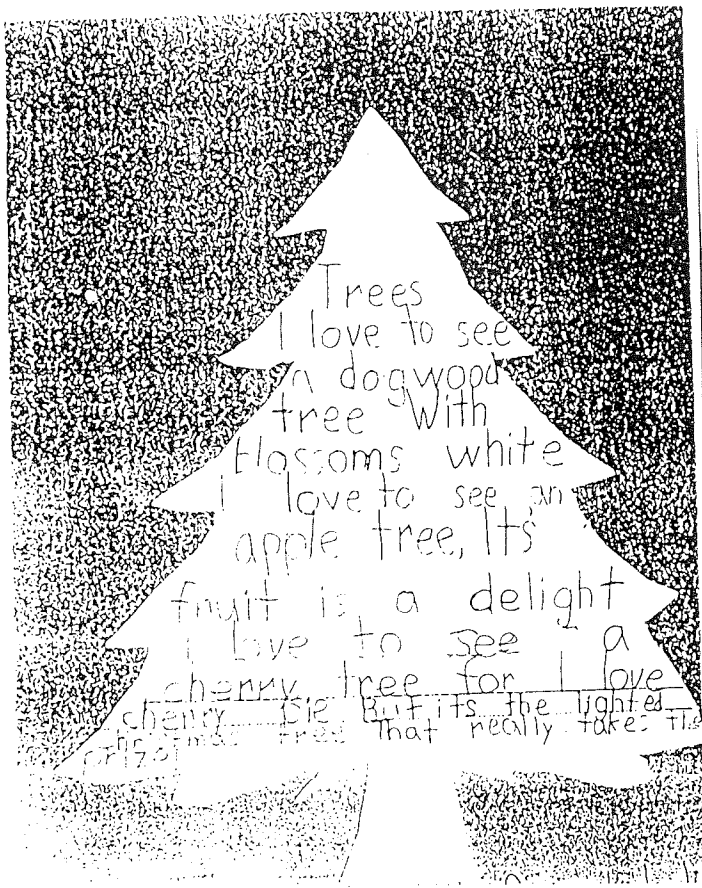 Trees
I love to see
a dogwood
tree With
blossoms white
I love to see an
apple tree, Its
fruit is a delight
I love to see a
cherry tree for I love
cherry pie But its the lighted
christmas tree That really takes the
prize!